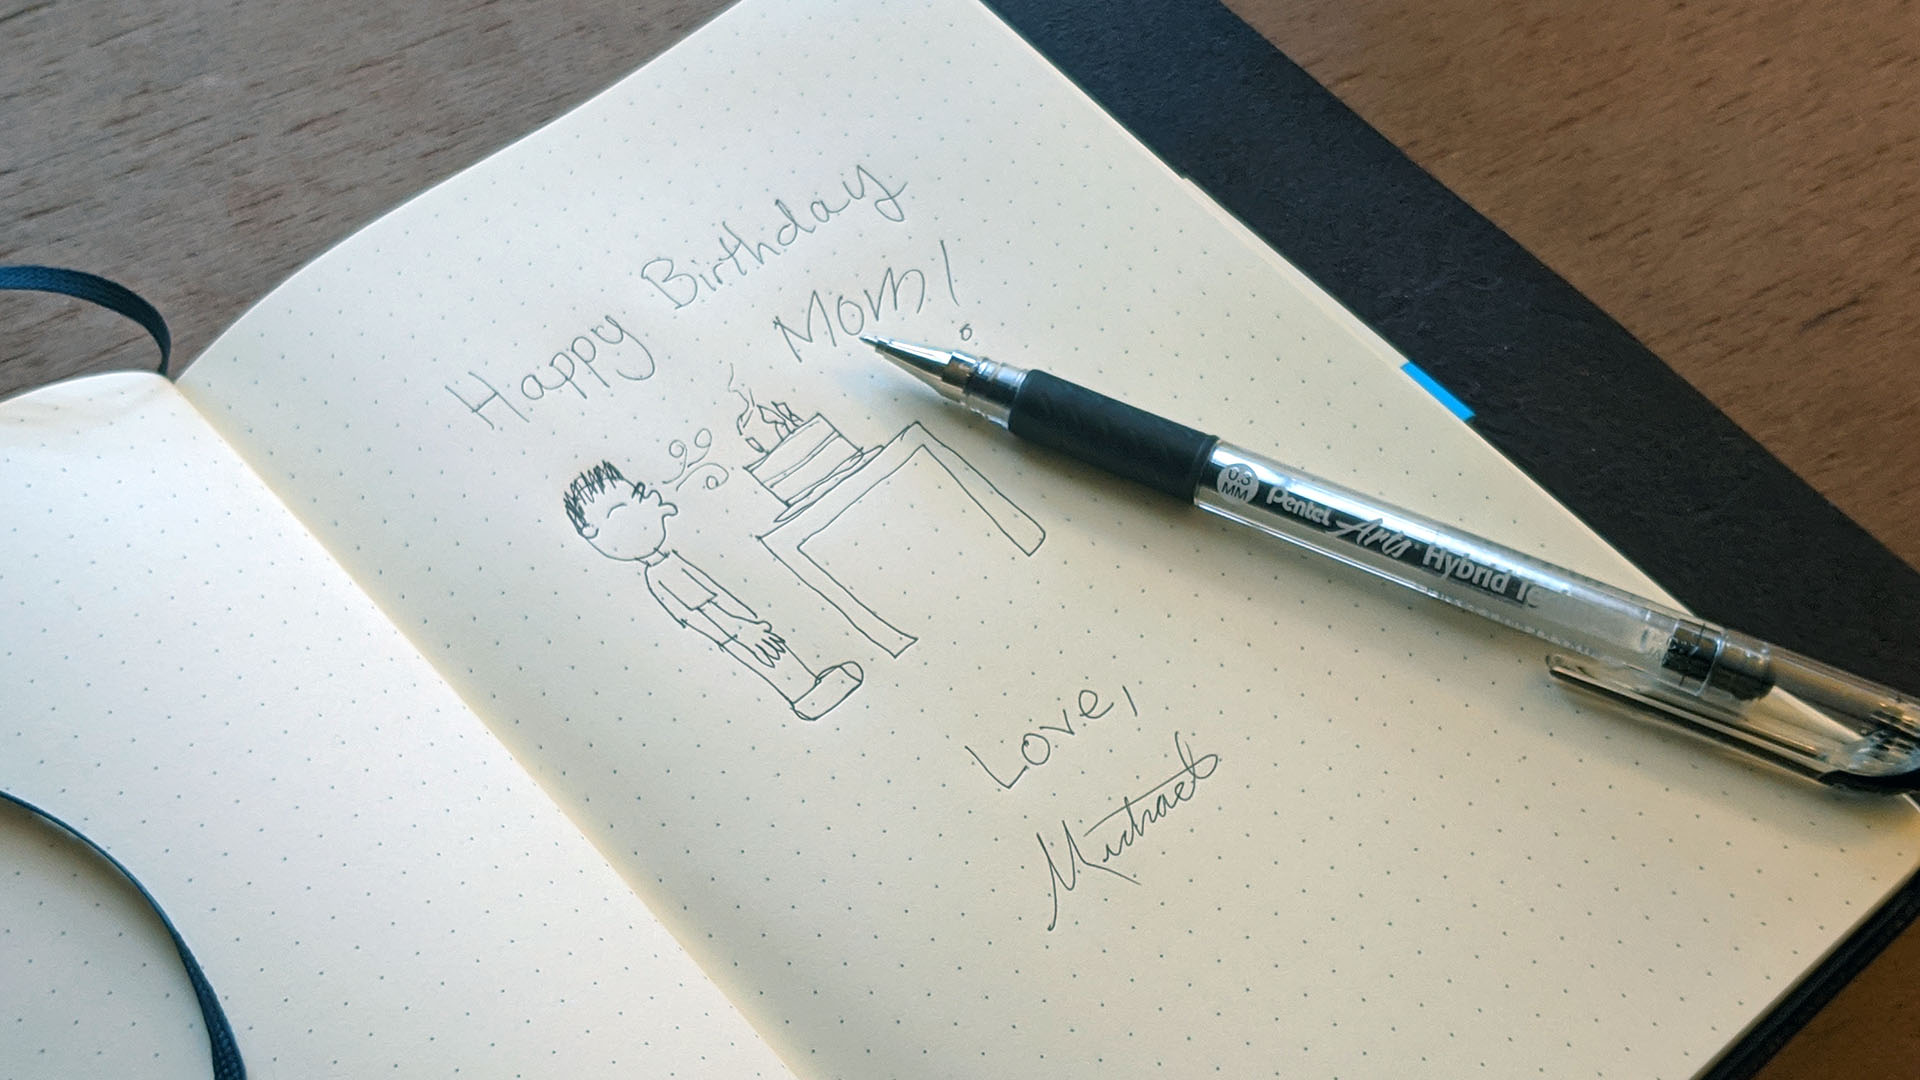 Happy Birthday
Mom!
Love,
Michael
0.3
MM
Pentel Arts Hybrid Te